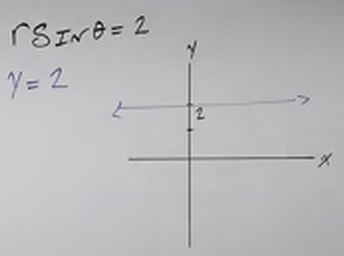 rSINθ = 2
y = 2
y
2
x